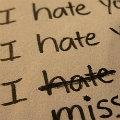 I hate yo
I hate y
I hate
miss